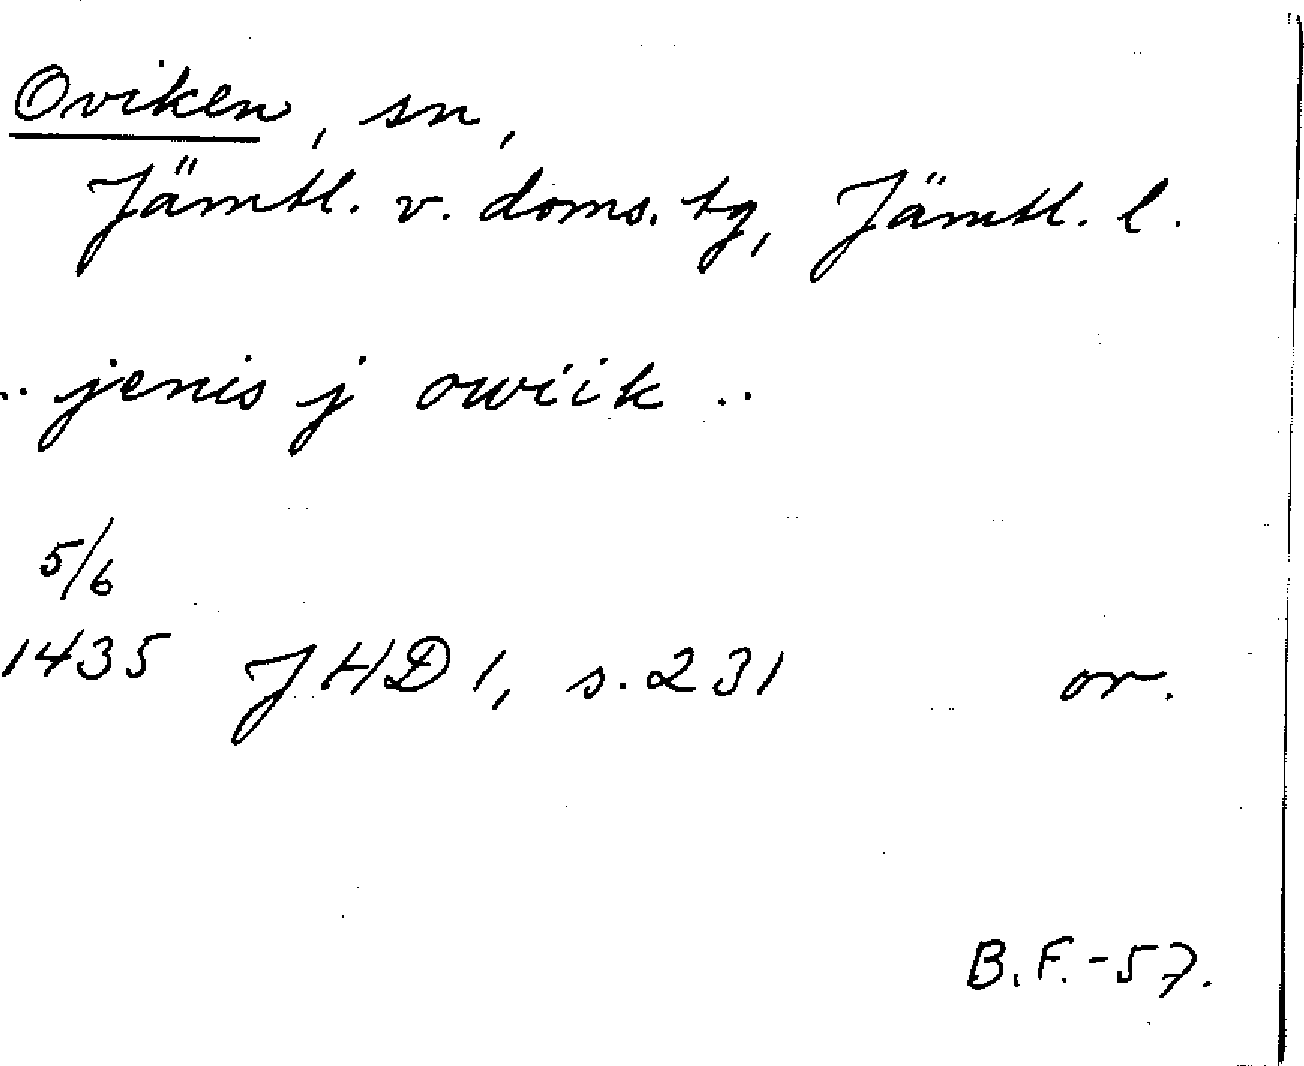 Oviken, sn,
Jämtl. v. doms. tg, Jämtl. l.
.. jenis j owiik ..
5/6
1435 JHD 1, s. 231 or.
B.F.-57.